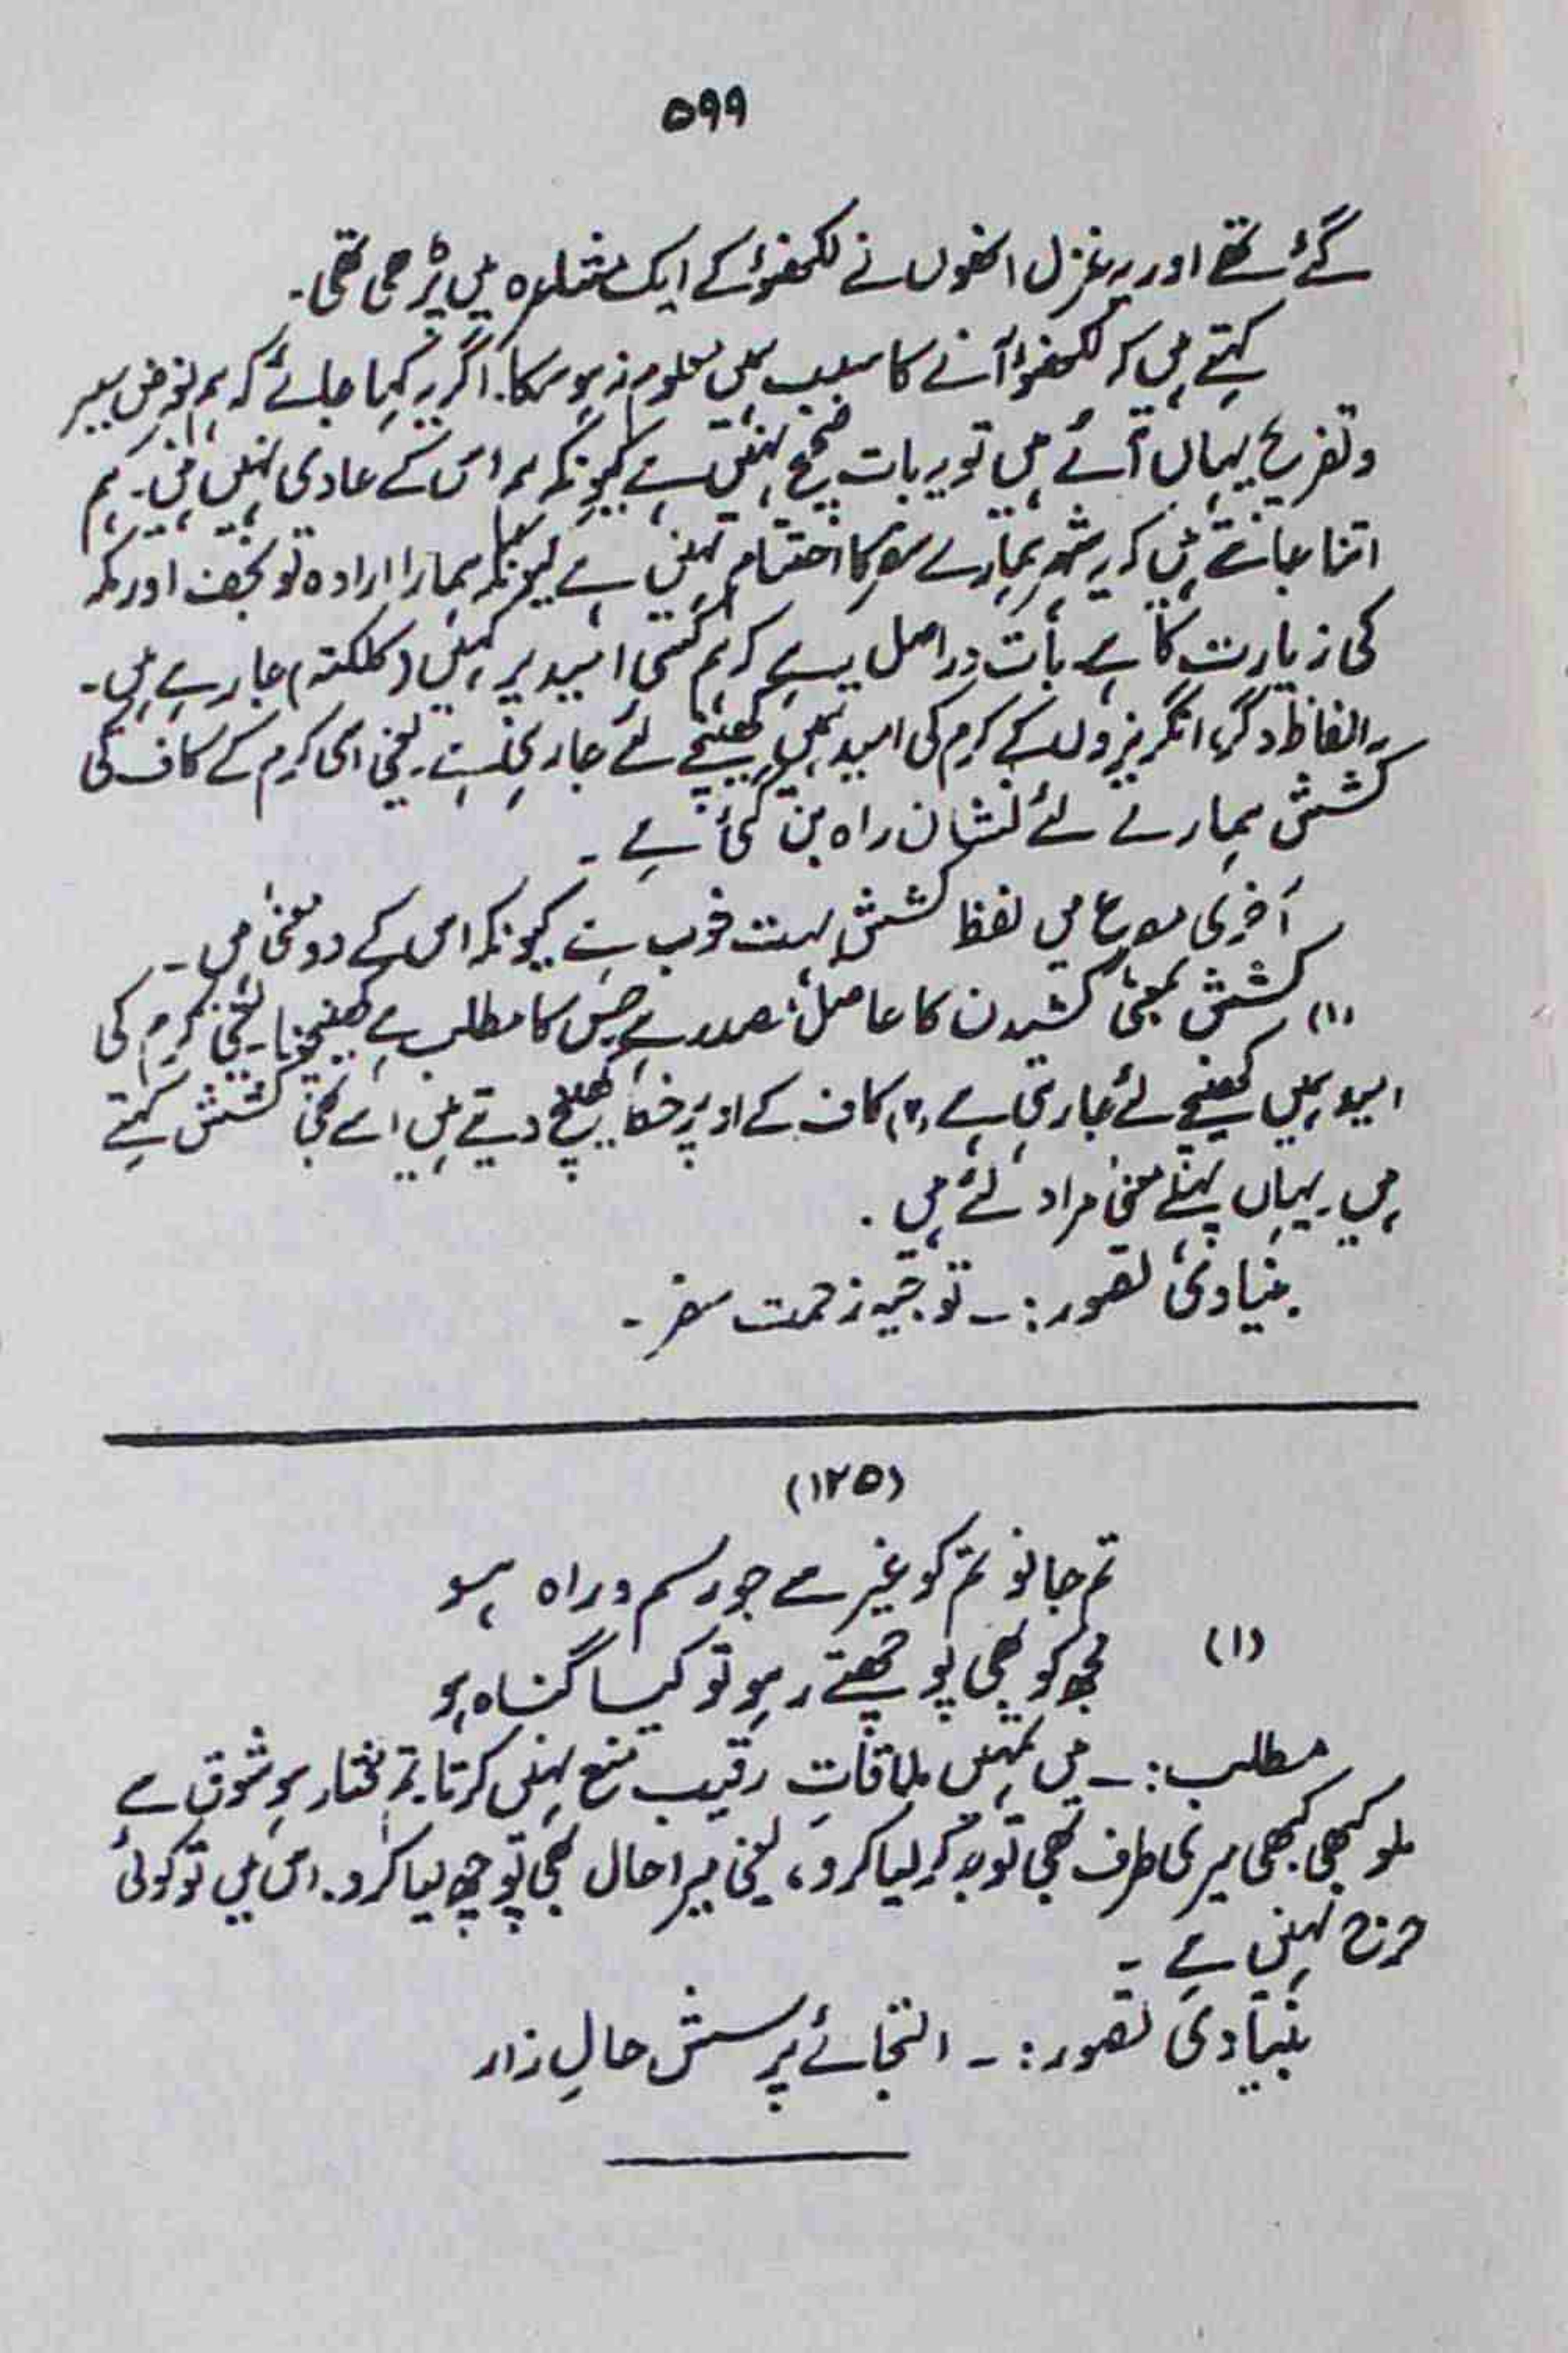 ۵۹۹
گئے تھے اور یہ غزل انھوں نے لکھنؤ کے ایک مشاعرہ میں پڑھی تھی۔
کہتے ہیں کہ لکھنؤ آنے کا سبب ہمیں معلوم نہ ہو سکا۔ اگر یہ کہا جائے کہ ہم بغرض سیر
و تفریح یہاں آئے ہیں تو یہ بات صحیح نہیں ہے کیونکہ ہم اس کے عادی نہیں ہیں۔ ہم
اتنا جانتے ہیں کہ یہ شہر ہمارے سفر کا اختتام نہیں ہے کیونکہ ہمارا ارادہ تو نجف اور مکہ
کی زیارت کا ہے۔ بات دراصل یہ ہے کہ ہم کسی امید پر کہیں (کلکتہ) جا رہے ہیں۔
بہ الفاظ دگر، انگریزوں کے کرم کی امید ہمیں کھینچے لئے جا رہی ہے۔ یعنی اسی کرم کے کاف کی
کشش ہمارے لئے نشان راہ بن گئی ہے۔
آخری مصرع میں لفظ کشش بہت خوب ہے کیونکہ اس کے دو معنی ہیں۔
(۱) کشش بمعنی کشیدن کا حاصل مصدر ہے جس کا مطلب ہے کھینچنا۔ یعنی کرم کی
امید ہمیں کھینچے لئے جا رہی ہے (۲) کاف کے اوپر خط کھینچ دیتے ہیں اسے بھی کشش کہتے
ہیں۔ یہاں پہلے معنی مراد لئے ہیں۔
بنیادی تصور:۔ توجیہ زحمت سفر۔
(۱۲۵)
تم جانو تم کو غیر سے جو رسم و راہ ہو
(۱) مجھ کو بھی پوچھتے رہو تو کیا گناہ ہو
مطلب:۔ میں تمہیں ملاقاتِ رقیب منع نہیں کرتا۔ تم مختار ہو شوق سے
ملو کبھی کبھی میری طرف بھی توجہ کر لیا کرو، یعنی میرا حال بھی پوچھ لیا کرو۔ اس میں تو کوئی
حرج نہیں ہے۔
بنیادی تصور:۔ التجائے پرسش حالِ زار